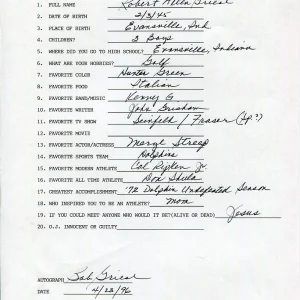 1. FULL NAME Robert Allen Griese
2. DATE OF BIRTH 2/3/45
3. PLACE OF BIRTH Evansville, Ind
4. CHILDREN? 3 Boys
5. WHERE DID YOU GO TO HIGH SCHOOL? Evansville, Indiana
6. WHAT ARE YOUR HOBBIES? Golf
7. FAVORITE COLOR Hunter Green
8. FAVORITE FOOD Italian
9. FAVORITE BAND/MUSIC Kenny G
10. FAVORITE WRITER John Grisham
11. FAVORITE TV SHOW Seinfeld / Fraser (Sp?)
12. FAVORITE MOVIE
13. FAVORITE ACTOR/ACTRESS Meryl Streep
14. FAVORITE SPORTS TEAM Dolphins
15. FAVORITE MODERN ATHLETE Cal Ripken Jr.
16. FAVORITE ALL TIME ATHLETE Don Shula
17. GREATEST ACCOMPLISHMENT '72 Dolphin Undefeated Season
18. WHO INSPIRED YOU TO BE AN ATHLETE? Mom
19. IF YOU COULD MEET ANYONE WHO WOULD IT BE?(ALIVE OR DEAD) Jesus
20. O.J. INNOCENT OR GUILTY
AUTOGRAPH Bob Griese
DATE 4/22/96